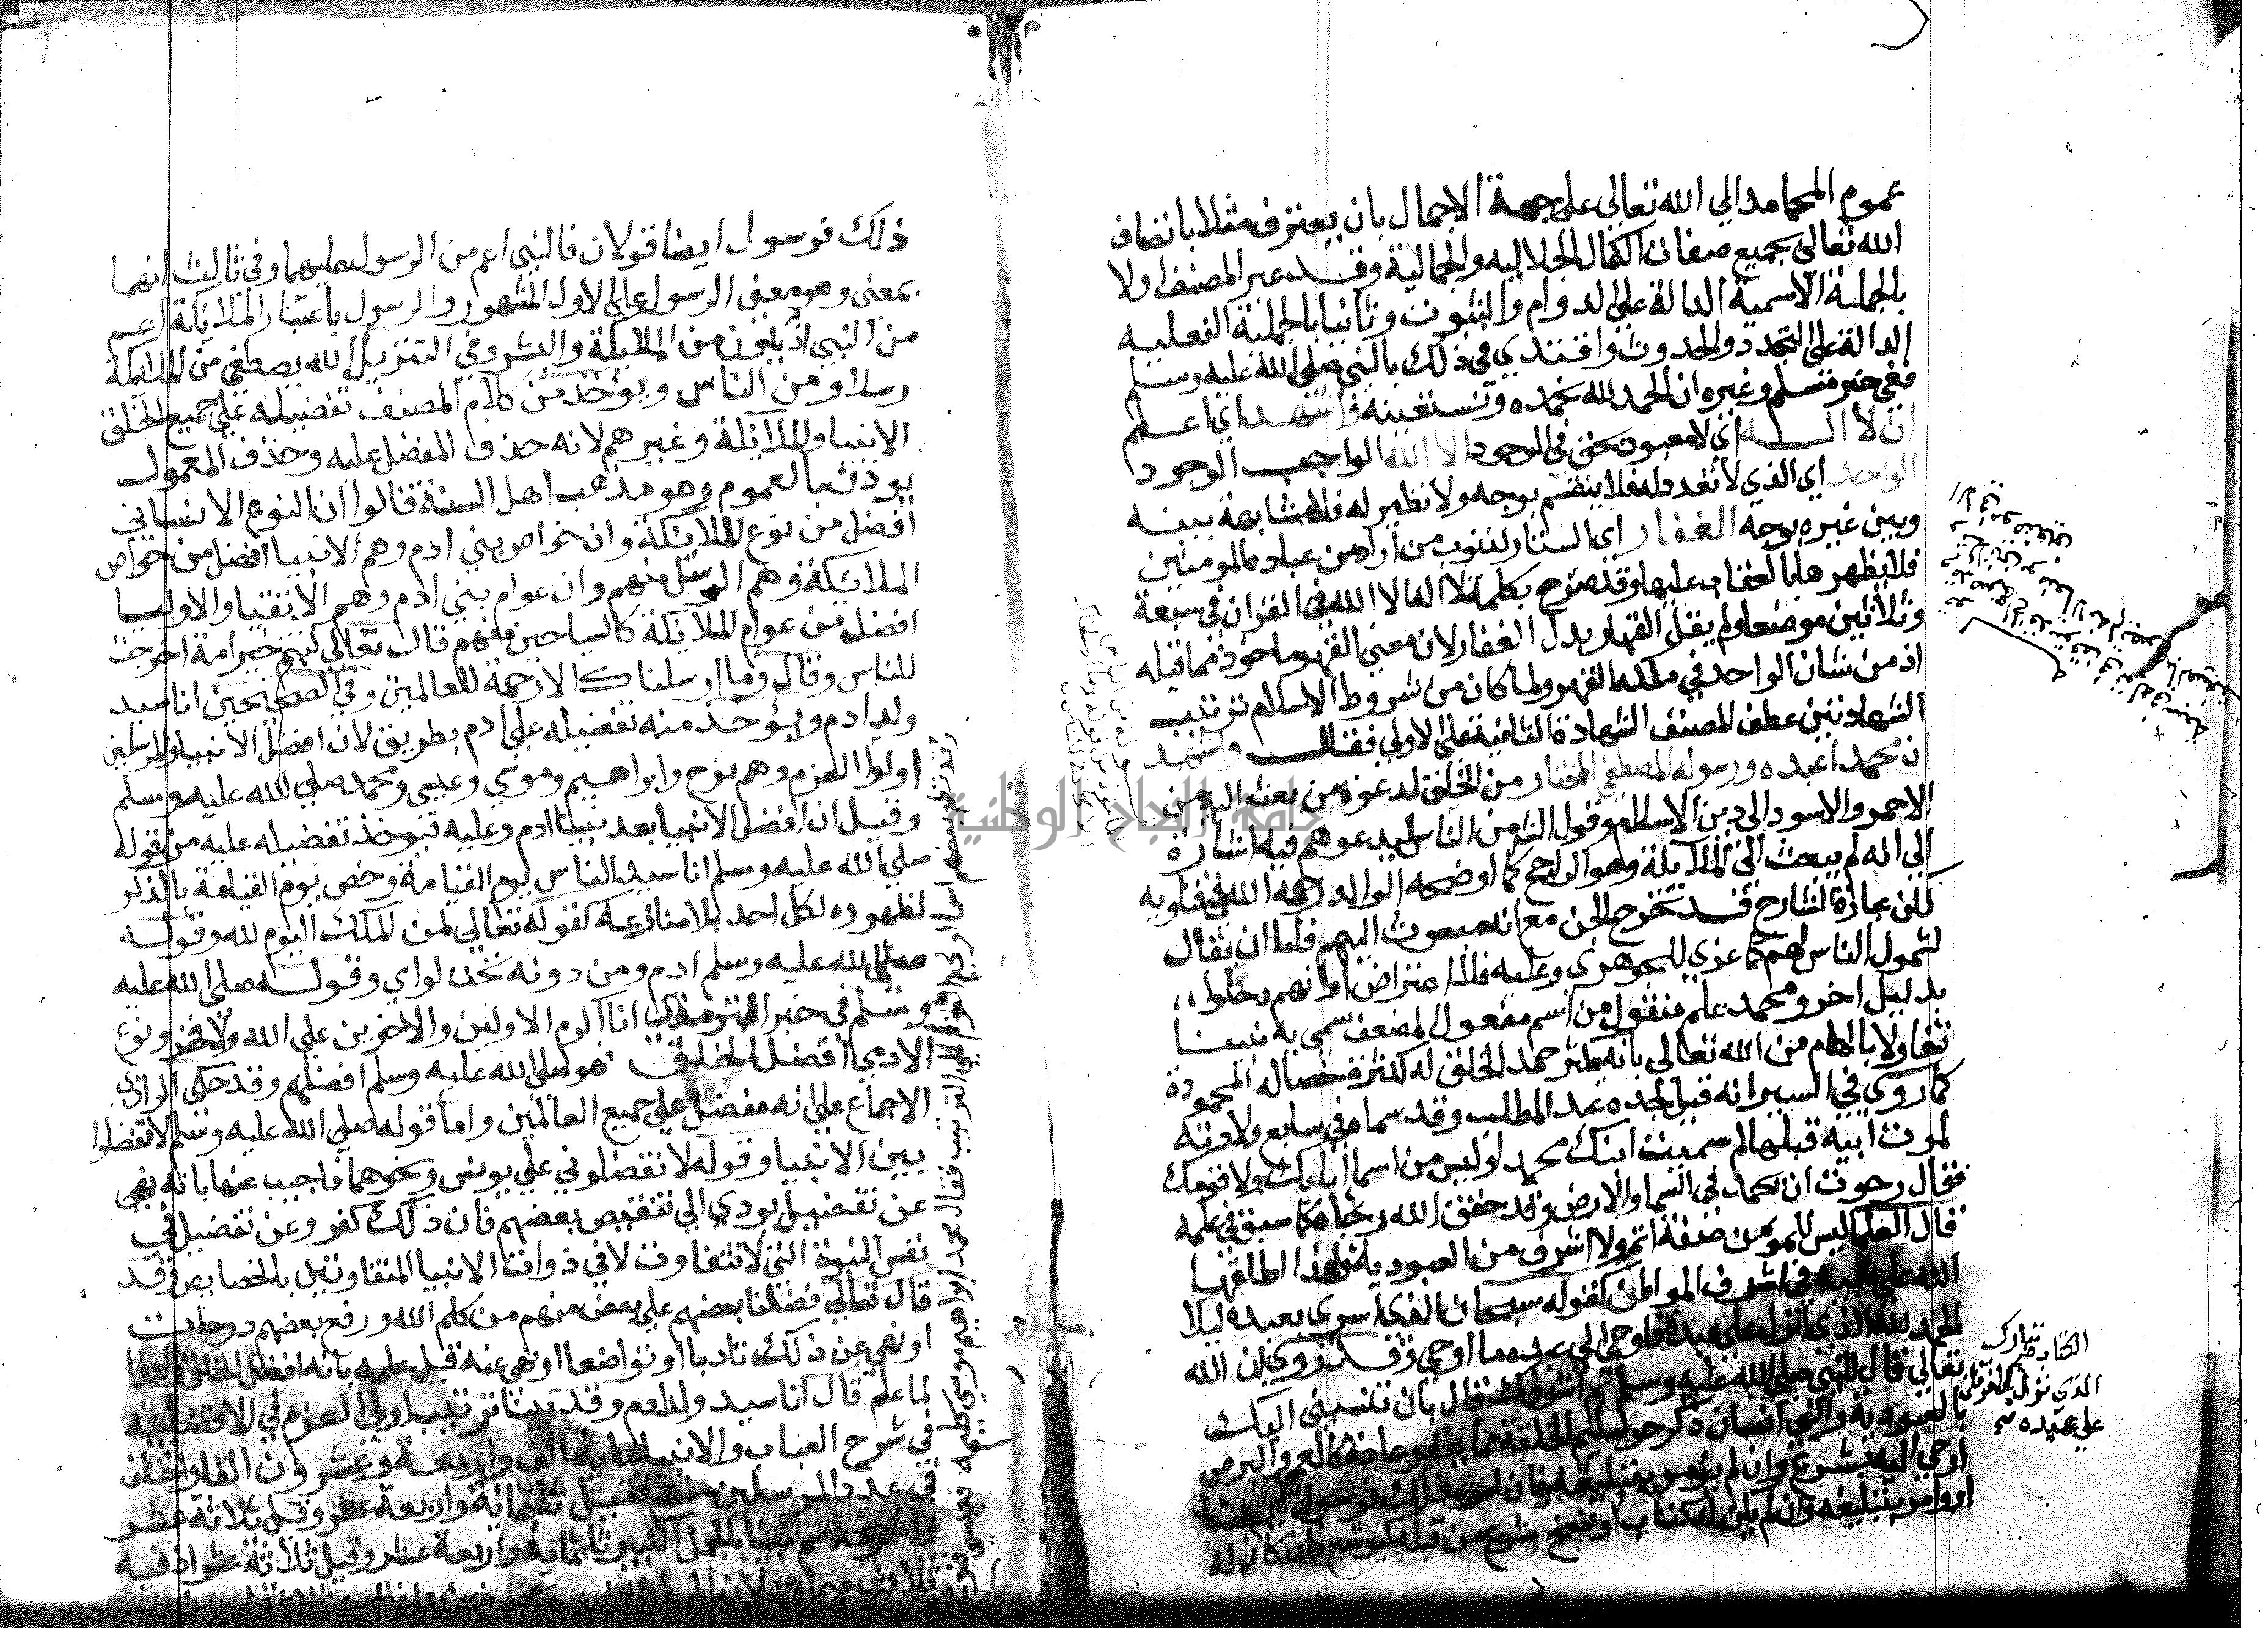 عموم المحامد الي الله تعالي علي جهة الاجمال بان يعترف مثلا باتصاف
الله تعالي بجميع صفات الكمال الجلاليه والجمالية وقد عبر المصنف اولا
بالجملة الاسمية الدالة علي الدوام والثبوت وثانيا بالجملة الفعليه
الدالة علي التجدد والحدوث واقتدي في ذلك بالنبي صلي الله عليه وسلم
ففي خبر مسلم وغيره ان الحمد لله نحمده ونستعينه واشهد اي اعلم
ان لا اله اي لا معبود بحق في الوجود الا الله الواجب الوجود
الواحد اي الذي لا تعدد له فلا ينقسم بوجه ولا نظير له فلا مشابهة بينه
وبين غيره بوجه الغفار اي الستار لذنوب من اراد من عباده المومنين
فلا يظهرها بالعقاب عليها وقد صرح بكلمة لا اله الا الله في القران في سبعة
وثلاثين موضعا ولم يقل القهار بدل الغفار لان معني القهر ماخوذ مما قبله
اذ من شان الواحد في ملكه القهر ولما كان من شروط الاسلام ترتيب
الشهادتين عطف المصنف الشهادة الثانية علي الاولي فقال واشهد
ان محمدا عبده ورسوله المصطفي المختار من الخلق لدعوة من بعث اليه من
الاحمر والاسود الي دين الاسلام وقول الشارح من الناس ليدعوهم فيه اشارة
الي انه لم يبعث الي الملايكة وهو الراجح كما اوضحه الوالد رحمه الله في فتاويه
لكن عبارة الشارح قد تخرج الجن مع انه مبعوث اليهم فاما ان يقال
لشمول الناس لهم كما عزي للجوهري وعليه فلا اعتراض او انهم دخلوا
بدليل اخر ومحمد علم منقول من اسم مفعول المضعف سمي به نبينا
تفاولا بالهام من الله تعالي بانه يكثر حمد الخلق له لكثرة خصاله المحمودة
كما روي في السير انه قيل لجده عبد المطلب وقد سماه في سابع ولادته
لموت ابيه قبلها لم سميت ابنك محمدا وليس من اسما ابايك ولا قومك
فقال رجوت ان يحمد في السما والارض وقد حقق الله رجاه كما سبق في علمه
قال العلما ليس للمومن صفة اتم ولا اشرف من العبودية فلهذا اطلقها
الله علي نبيه في اشرف المواطن كقوله سبحان الذي اسري بعبده ليلا
الحمد لله الذي انزل علي عبده فاوحي الي عبده ما اوحي وقد روي ان الله
تعالي قال للنبي صلي الله عليه وسلم بم اشرفك قال بان تنسبني اليك
بالعبودية والنبي انسان ذكر حر سليم الخلقة مما ينفر عادة كالعمي والبرص
اوحي اليه بشرع وان لم يؤمر بتبليغه فان امر بذلك فرسول ايضا
او وامر بتبليغه وان لم يكن له كتاب او نسخ شرع من قبله كيوشع فان كان له
الكتاب تبارك
الذي نزل الفرقان
علي عبده
ذلك فرسول ايضا قولان فالنبي اعم من الرسول عليهما وفي ثالث انهما
بمعني وهو معني الرسول علي الاول المشهور والرسول باعتبار الملايكة اعم
من النبي اذ يكون من الملايكة والبشر وفي التنزيل الله يصطفي من الملايكة
رسلا ومن الناس ويؤخذ من كلام المصنف تفضيله علي جميع الخلق
الانبيا والملائكة وغيرهم لانه حذف المفضل عليه وحذف المعمول
يوذن بالعموم وهو مذهب اهل السنة قالوا ان النوع الانساني
افضل من نوع الملائكة وان خواص بني ادم وهم الانبيا افضل من خواص
الملائكة وهم الرسل منهم وان عوام بني ادم وهم الاتقيا والاوليا
افضل من عوام الملائكة كالسياحين منهم قال تعالي كنتم خير امة اخرجت
للناس وقال وما ارسلناك الا رحمة للعالمين وفي الصحيحين انا سيد
ولد ادم ويؤخذ منه تفضيله علي ادم بطريق لان افضل الانبيا والمرسلين
اولوا العزم وهم نوح وابراهيم وموسي وعيسي ومحمد صلي الله عليه وسلم
وقيل ان افضل الانبيا بعد نبينا ادم وعليه فيوخذ تفضيله عليه من قوله
صلي الله عليه وسلم انا سيد الناس يوم القيامة وخص يوم القيامة بالذكر
لظهوره لكل احد بلا منازعه كقوله تعالي لمن الملك اليوم لله وقوله
صلي الله عليه وسلم ادم ومن دونه تحت لواي وقوله صلي الله عليه
وسلم في خبر الترمذي انا اكرم الاولين والاخرين علي الله ولا فخر ونوع
الادمي افضل الخلق فهو صلي الله عليه وسلم افضلهم وقد حكي الرازي
الاجماع علي انه مفضل علي جميع العالمين واما قوله صلي الله عليه وسلم لا تفضلوا
بين الانبيا وقوله لا تفضلوني علي يونس ونحوهما فاجيب عنها بانه نهي
عن تفضيل يودي الي تنقيص بعضهم فان ذلك كفر وعن تفضيل في
نفس النبوة التي لا تتفاوت لا في ذوات الانبيا المتفاوتين بالخصايص وقد
قال تعالي فضلنا بعضهم علي بعض منهم من كلم الله ورفع بعضهم درجات
او نهي عن ذلك تادبا او تواضعا او نهي عنه قبل علمه بانه افضل الخلق ولهذا
لما علم قال انا سيد ولد ادم وقد بينا ترتيب اولي العزم في الافضلية
في شرح العباب والانبيا ماية الف واربعة وعشرون الفا واختلف
في عدد المرسلين منهم فقيل ثلثماية واربعة عشر وقيل ثلاثة عشر
بالجمل الكبير ثلثماية واربعة عشر وقيل ثلاثة عشر اذ فيه
جامعة النجاح الوطنية